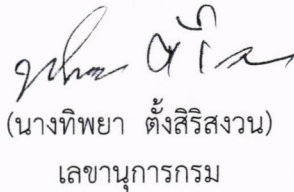 (นางทิพยา ตั้งสิริสงวน)
เลขานุการกรม